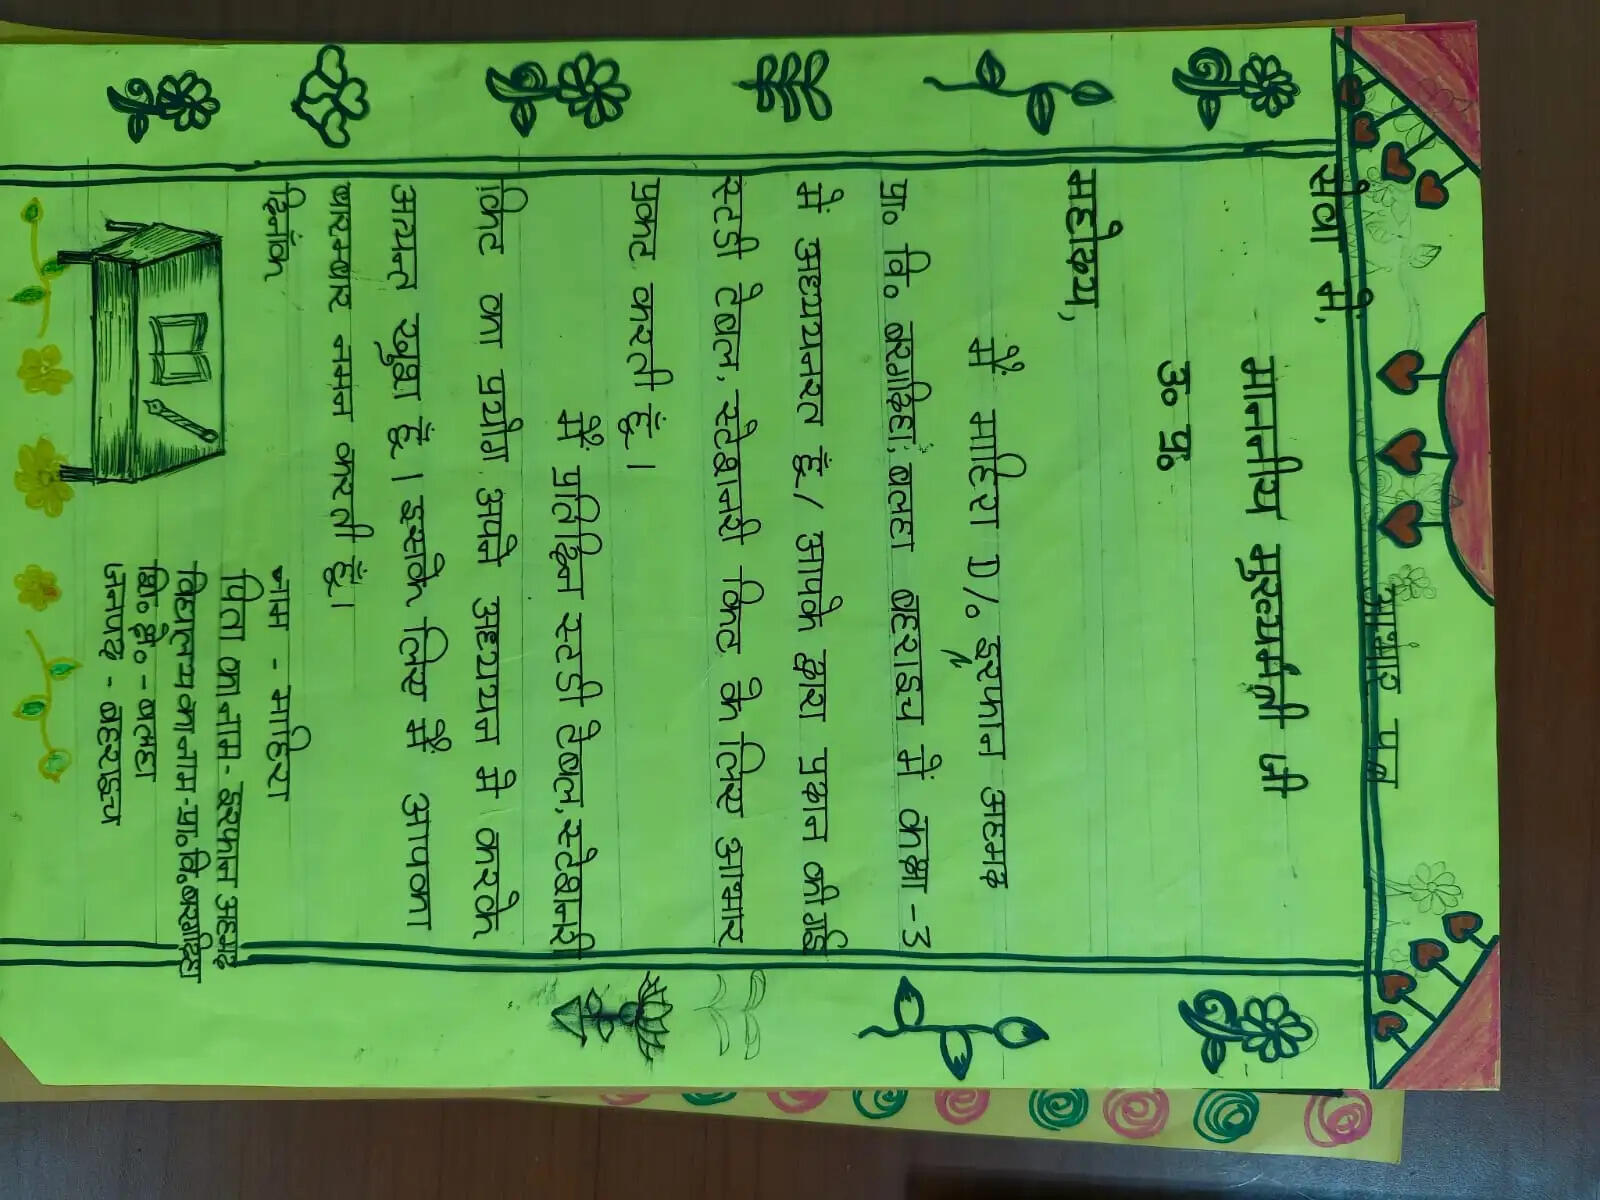 आभार पत्र
सेवा में,
माननीय मुख्यमंत्री जी
उ० प्र०
महोदय,
मैं माहिरा D/o इरफान अहमद
प्रा० वि० बरगदिहा, बलहा बहराइच में कक्षा -3
में अध्ययनरत हूँ। आपके द्वारा प्रदान की गई
स्टडी टेबल, स्टेशनरी किट के लिए आभार
प्रकट करती हूँ।
मैं प्रतिदिन स्टडी टेबल, स्टेशनरी
किट का प्रयोग अपने अध्ययन में करके
अत्यन्त खुश हूँ। इसके लिए मैं आपका
बारम्बार नमन करती हूँ।
दिनांक
नाम - माहिरा
पिता का नाम - इरफान अहमद
विद्यालय का नाम - प्रा० वि० बरगदिहा
शि० क्षे० - बलहा
जनपद - बहराइच